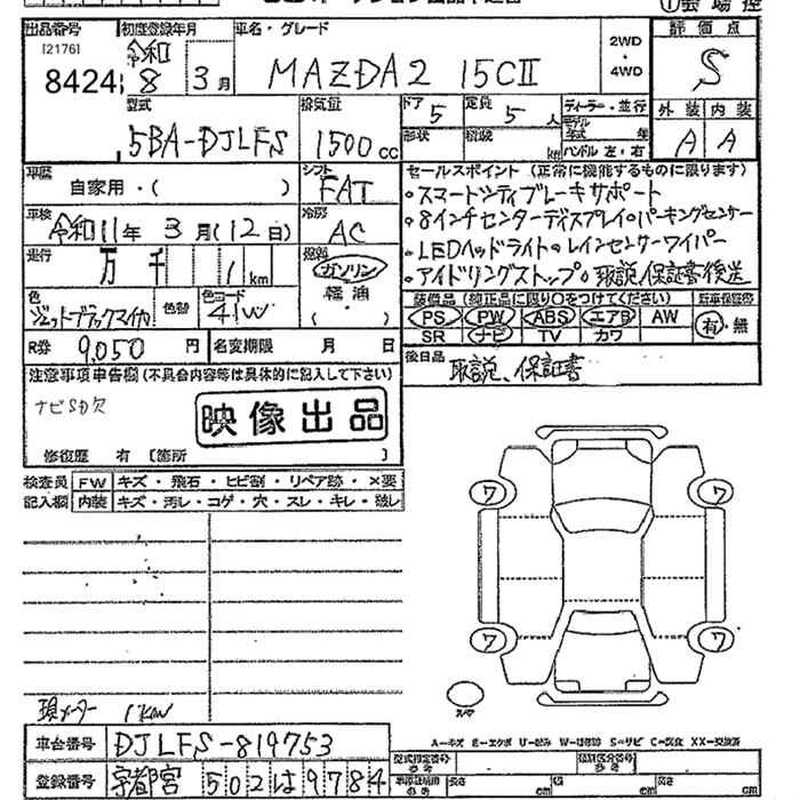 出品番号 初度登録年月 車名・グレード 2WD・4WD 評価点
[2176] 8424 令和 8 3月 MAZDA2 15CⅡ S
型式 排気量 ドア 5 定員 5人 ディーラー・並行 外装 内装
5BA-DJLFS 1500cc 形状 積載 kg モデル年式 年 A A
ハンドル 左・右
車歴 自家用・( ) シフト FAT
セールスポイント (正常に機能するものに限ります)
・スマートシティブレーキサポート
車検 令和11年 3月(12日) 冷房 AC
・8インチセンターディスプレイ・パーキングセンサー
・LEDヘッドライト・レインセンサーワイパー
走行 万 千 1km 燃料 ガソリン 軽油 ( )
・アイドリングストップ・取説、保証書後送
色 ジェットブラックマイカ 色替 色コード 41W
装備品 (純正品に限り○をつけてください) 新車保証書
PS PW ABS エアB AW 有・無
SR ナビ TV カワ
R券 9,050円 名変期限 月 日
後日品 取説、保証書
注意事項申告欄(不具合内容等は具体的に記入して下さい)
ナビSD欠
映像出品
修復歴 有 〔箇所 〕
検査員 FW キズ・飛石・ヒビ割・リペア跡・×要
記入欄 内装 キズ・汚レ・コゲ・穴・スレ・キレ・破レ
ワ ワ
ワ ワ
現メーター 1km
A=キズ E=エクボ
車台番号 DJLFS-819753
登録番号 宇都宮 502 は 9784
型式指定番号 参考 類別区分番号 参考
長さ cm 幅 cm 高さ cm